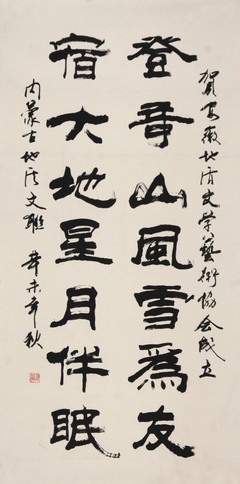 賀安徽地质文学藝術協会成立
登竒山風雪爲友
宿大地星月伴眠
内蒙古地质文聯 辛未年秋